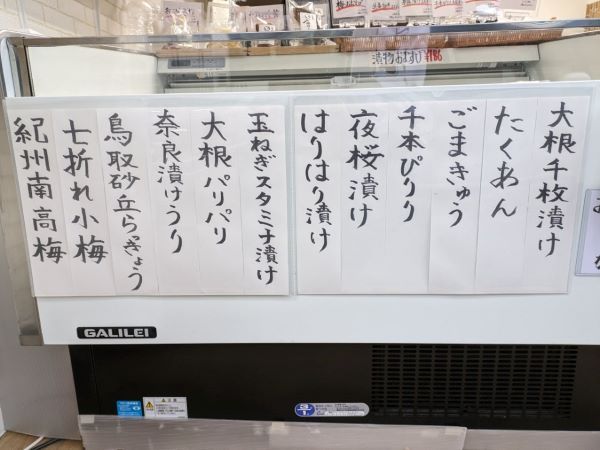 漬物おむすび¥186
大根千枚漬け
たくあん
ごまきゅう
千本ぴりり
夜桜漬け
はりはり漬け
玉ねぎスタミナ漬け
大根パリパリ
奈良漬けうり
鳥取砂丘らっきょう
七折れ小梅
紀州南高梅
GALILEI
注意